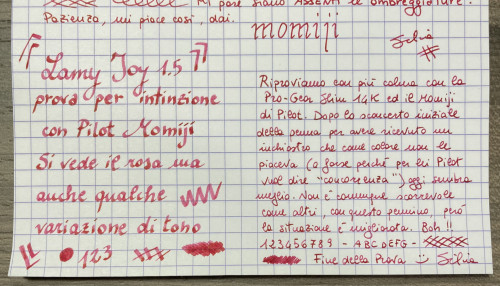 Mi pare siano ASSENTI le ombreggiature.
Pazienza, mi piace così, dai.
momiji
Silvia
Lamy Joy 1.5
prova per intinzione
con Pilot Momiji
Si vede il rosa ma
anche qualche
variazione di tono
123
Riproviamo con più calma con la
Pro-Gear Slim 14K ed il Momiji
di Pilot. Dopo lo sconcerto iniziale
della penna per avere ricevuto un
inchiostro che come colore non le
piaceva (o forse perché per lei Pilot
vuol dire "concorrenza") oggi sembra
meglio. Non è comunque scorrevole
come altri, con questo pennino, però
la situazione è migliorata. Boh!!
123456789 - ABCDEFG -
Fine della Prova :) Silvia